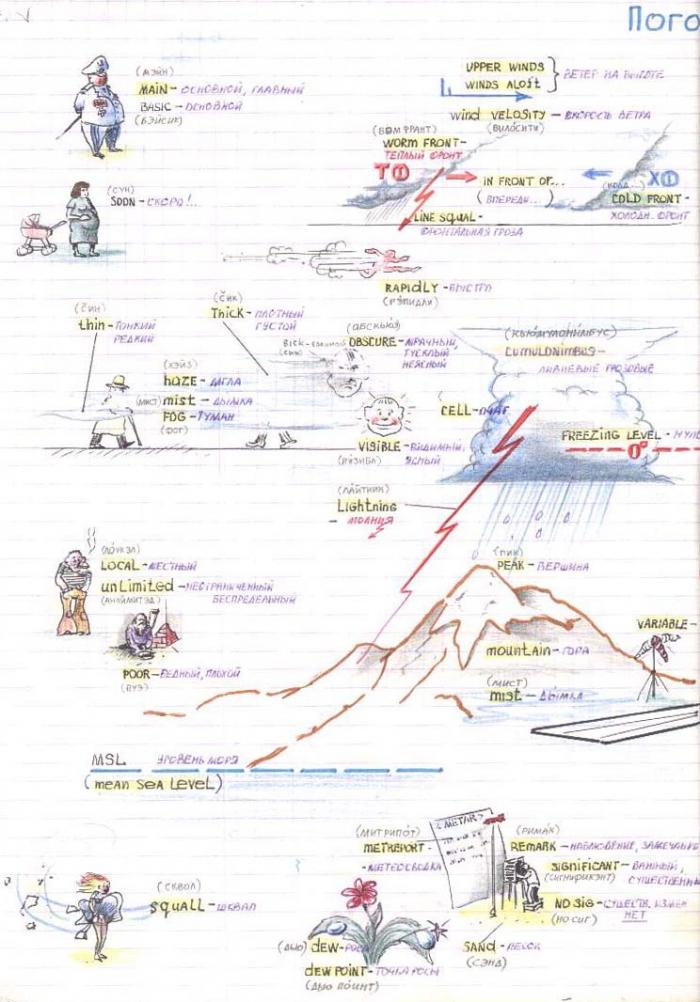 Пого
(мэйн)
MAIN - ОСНОВНОЙ, ГЛАВНЫЙ
BASIC - ОСНОВНОЙ
(БЭЙСИК)
UPPER WINDS
WINDS ALOFT
ВЕТЕР НА ВЫСОТЕ
WIND VELOSITY - СКОРОСТЬ ВЕТРА
(ВИЛОСИТИ)
(ВОМ ФРАНТ)
WORM FRONT-
ТЕПЛЫЙ ФРОНТ
T
IN FRONT OF...
(ВПЕРЕДИ...)
X
COLD FRONT-
ХОЛОДН. ФРОНТ
LINE SQUAL -
ФРОНТАЛЬНАЯ ГРОЗА
(СУН)
SOON - СКОРО!..
RAPIDLY - БЫСТРО
(РЭПИДЛИ)
(ЧИН)
thin - ТОНКИЙ
РЕДКИЙ
(ЧИК)
Thick - ПЛОТНЫЙ
ГУСТОЙ
(АБСКЬЮЭ)
OBSCURE - МРАЧНЫЙ,
ТУСКЛЫЙ
НЕЯСНЫЙ
(ХЭЙЗ)
haze - МГЛА
(МИСТ) mist - ДЫМКА
FOG - ТУМАН
(ФОГ)
VISIBLE - ВИДИМЫЙ,
ЯСНЫЙ
(ВИЗИБЛ)
(КЬЮМУЛОНИМБУС)
CUMULONIMBUS -
ЛИВНЕВЫЕ ГРОЗОВЫЕ
CELL - ОЧАГ
FREEZING LEVEL - НУЛ
0°
(ЛАЙТНИН)
Lightning
- МОЛНИЯ
(ЛОУКЭЛ)
LOCAL - МЕСТНЫЙ
unLimited - НЕОГРАНИЧЕННЫЙ
БЕСПРЕДЕЛЬНЫЙ
(АНЛИМИТЭД)
POOR - БЕДНЫЙ, ПЛОХОЙ
(ПУЭ)
(ПИК)
PEAK - ВЕРШИНА
VARIABLE -
mountain - ГОРА
(МИСТ)
mist - ДЫМКА
MSL УРОВЕНЬ МОРЯ
(mean SEA LEVEL)
(СКВОЛ)
SQUALL - ШКВАЛ
<METAR>
(МИТРИПОТ)
METREPORT -
- МЕТЕОСВОДКА
(РИМАК)
REMARK - НАБЛЮДЕНИЕ,
SIGNIFICANT - ВАЖНЫЙ,
(СИГНИФИКЭНТ) СУЩЕСТВЕННЫ
NO SIG - СУЩЕСТВ. ИЗМЕН
(НО СИГ) НЕТ
SAND - ПЕСОК
(СЭНД)
(ДЬЮ) DEW - РОСА
DEW POINT - ТОЧКА РОСЫ
(ДЬЮ ПОИНТ)